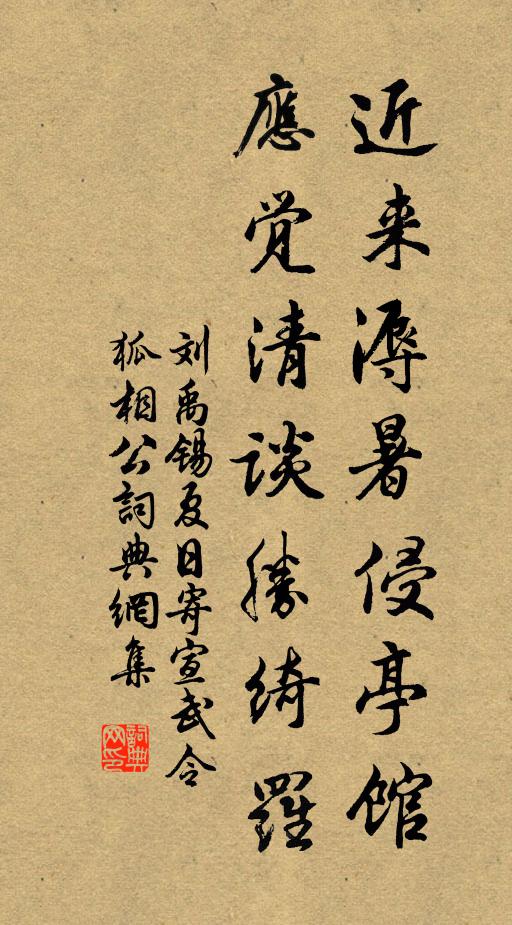 近来溽暑侵亭馆
應觉清谈勝綺羅
刘禹锡夏日寄宣武令
狐相公詞典網集
詞典网印